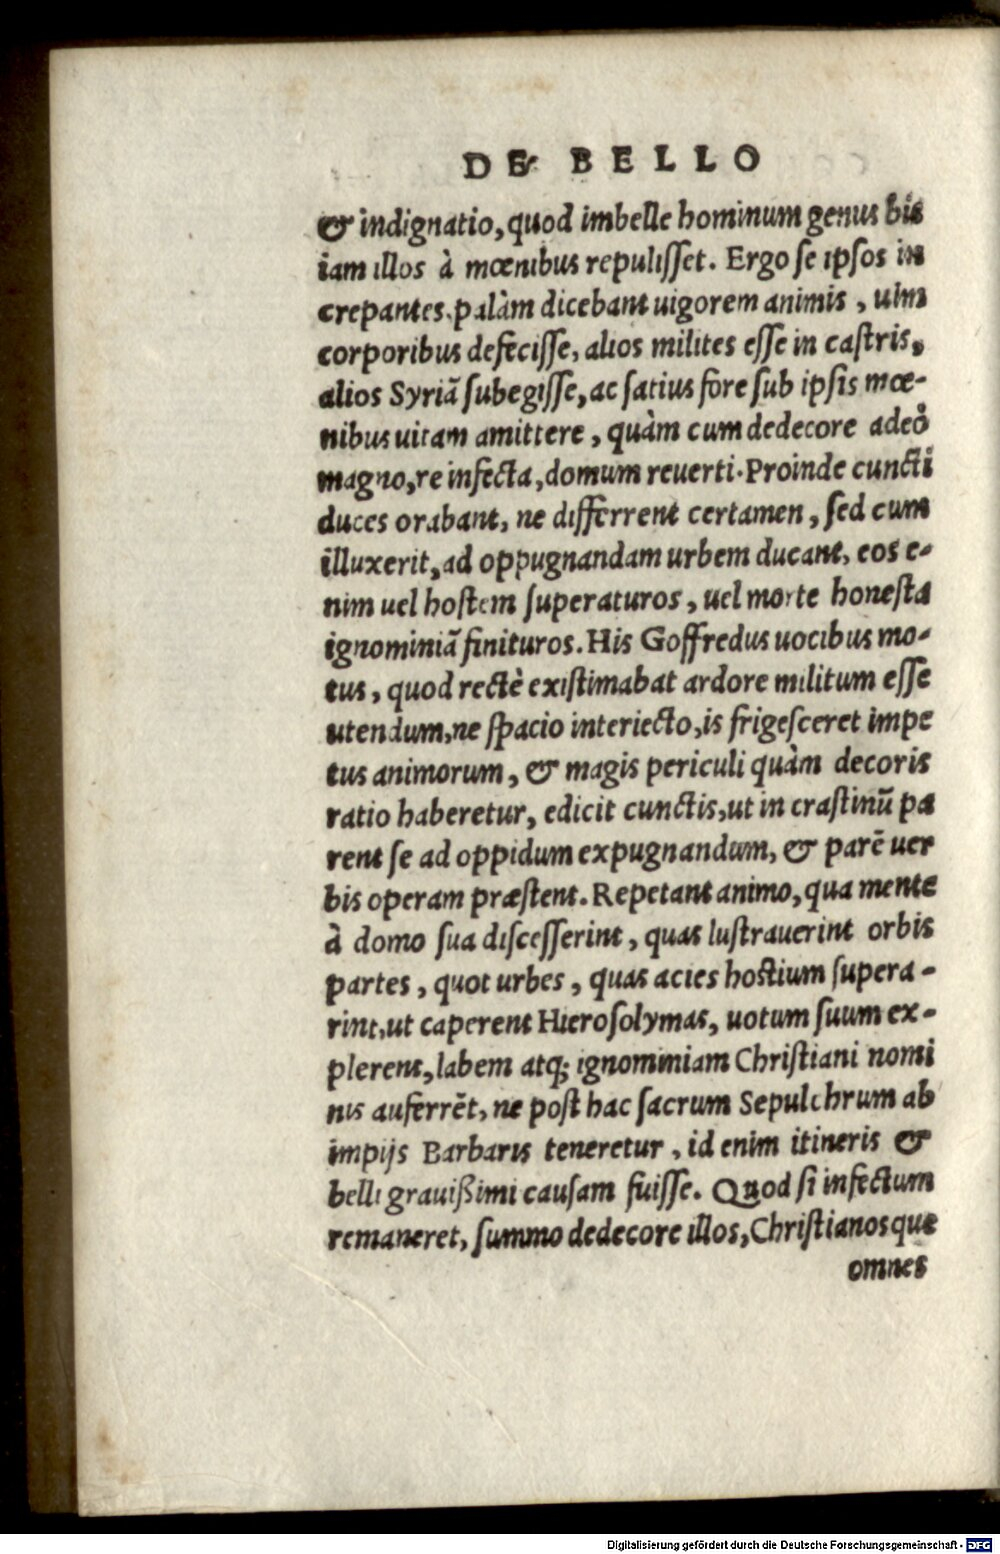 DE BELLO
& indignatio, quod imbelle hominum genus bis
iam illos à mœnibus repulisset. Ergo se ipsos in
crepantes, palàm dicebant uigorem animis, uim
corporibus defecisse, alios milites esse in castris,
alios Syriã subegisse, ac satius fore sub ipsis mœ-
nibus uitam amittere, quàm cum dedecore adeò
magno, re infecta, domum reuerti. Proinde cuncti
duces orabant, ne differrent certamen, sed cum
illuxerit, ad oppugnandam urbem ducant, eos e-
nim uel hostem superaturos, uel morte honesta
ignominiã finituros. His Goffredus uocibus mo-
tus, quod rectè existimabat ardore militum esse
utendum, ne spacio interiecto, is frigesceret impe
tus animorum, & magis periculi quàm decoris
ratio haberetur, edicit cunctis, ut in crastinũ pa
rent se ad oppidum expugnandum, & parẽ uer
bis operam præstent. Repetant animo, qua mente
à domo sua discesserint, quas lustrauerint orbis
partes, quot urbes, quas acies hostium supera-
rint, ut caperent Hierosolymas, uotum suum ex-
plerent, labem atq; ignominiam Christiani nomi
nis auferrẽt, ne post hac sacrum Sepulchrum ab
impijs Barbaris teneretur, id enim itineris &
belli grauißimi causam fuisse. Quod si infectum
remaneret, summo dedecore illos, Christianosque
omnes
Digitalisierung gefördert durch die Deutsche Forschungsgemeinschaft - DFG